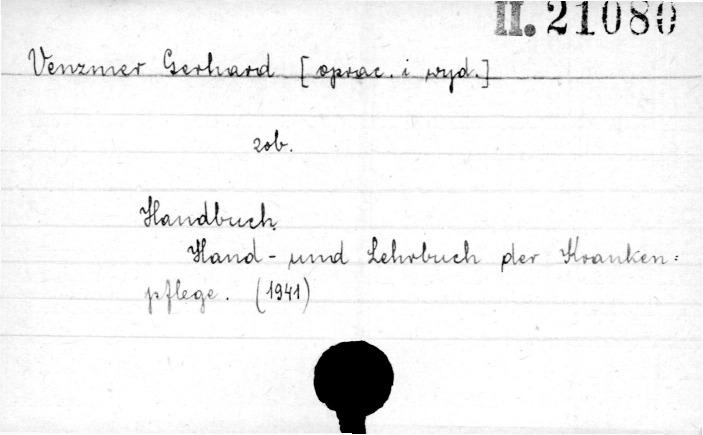 II. 21080
Venzmer Gerhard [oprac. i wyd.]
zob.
Handbuch.
Hand- und Lehrbuch der Kranken=
pflege. (1941)